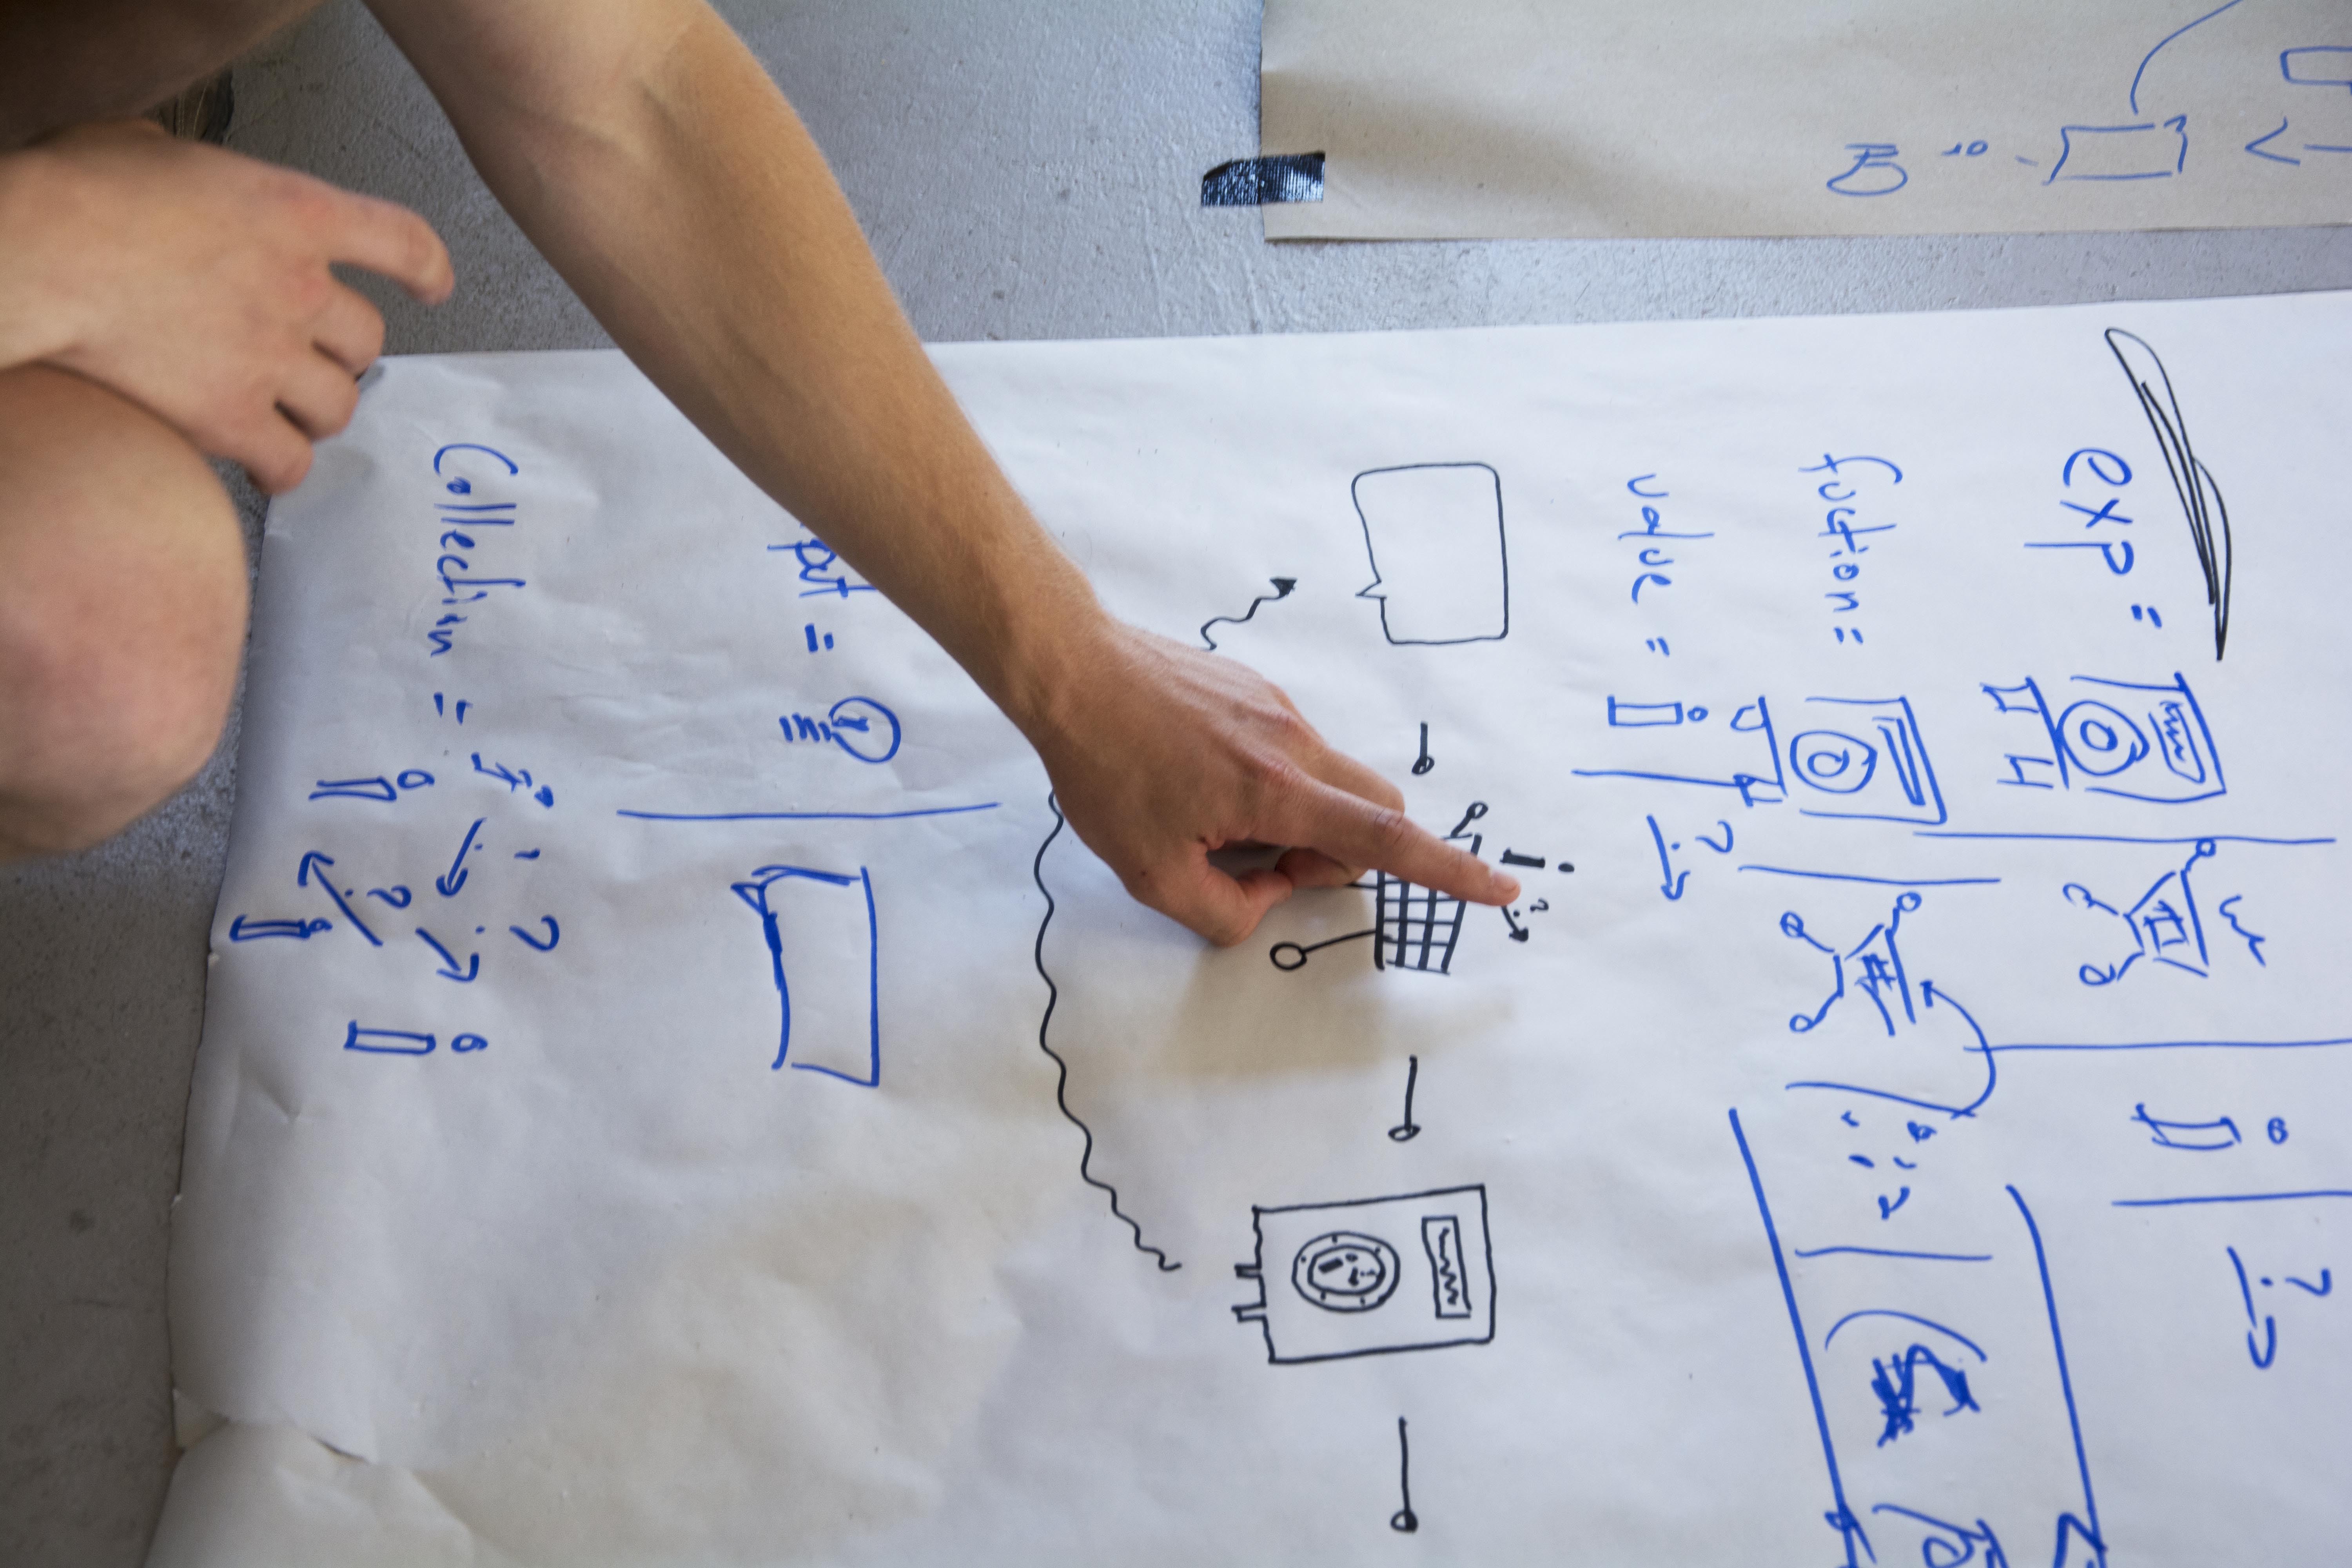 exp =
fuction =
value =
put =
Collection =